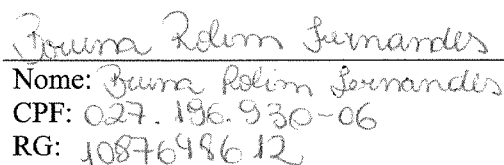 Bruna Rolim Fernandes
Nome: Bruna Rolim Fernandes
CPF: 027.196.930-06
RG: 1087648612